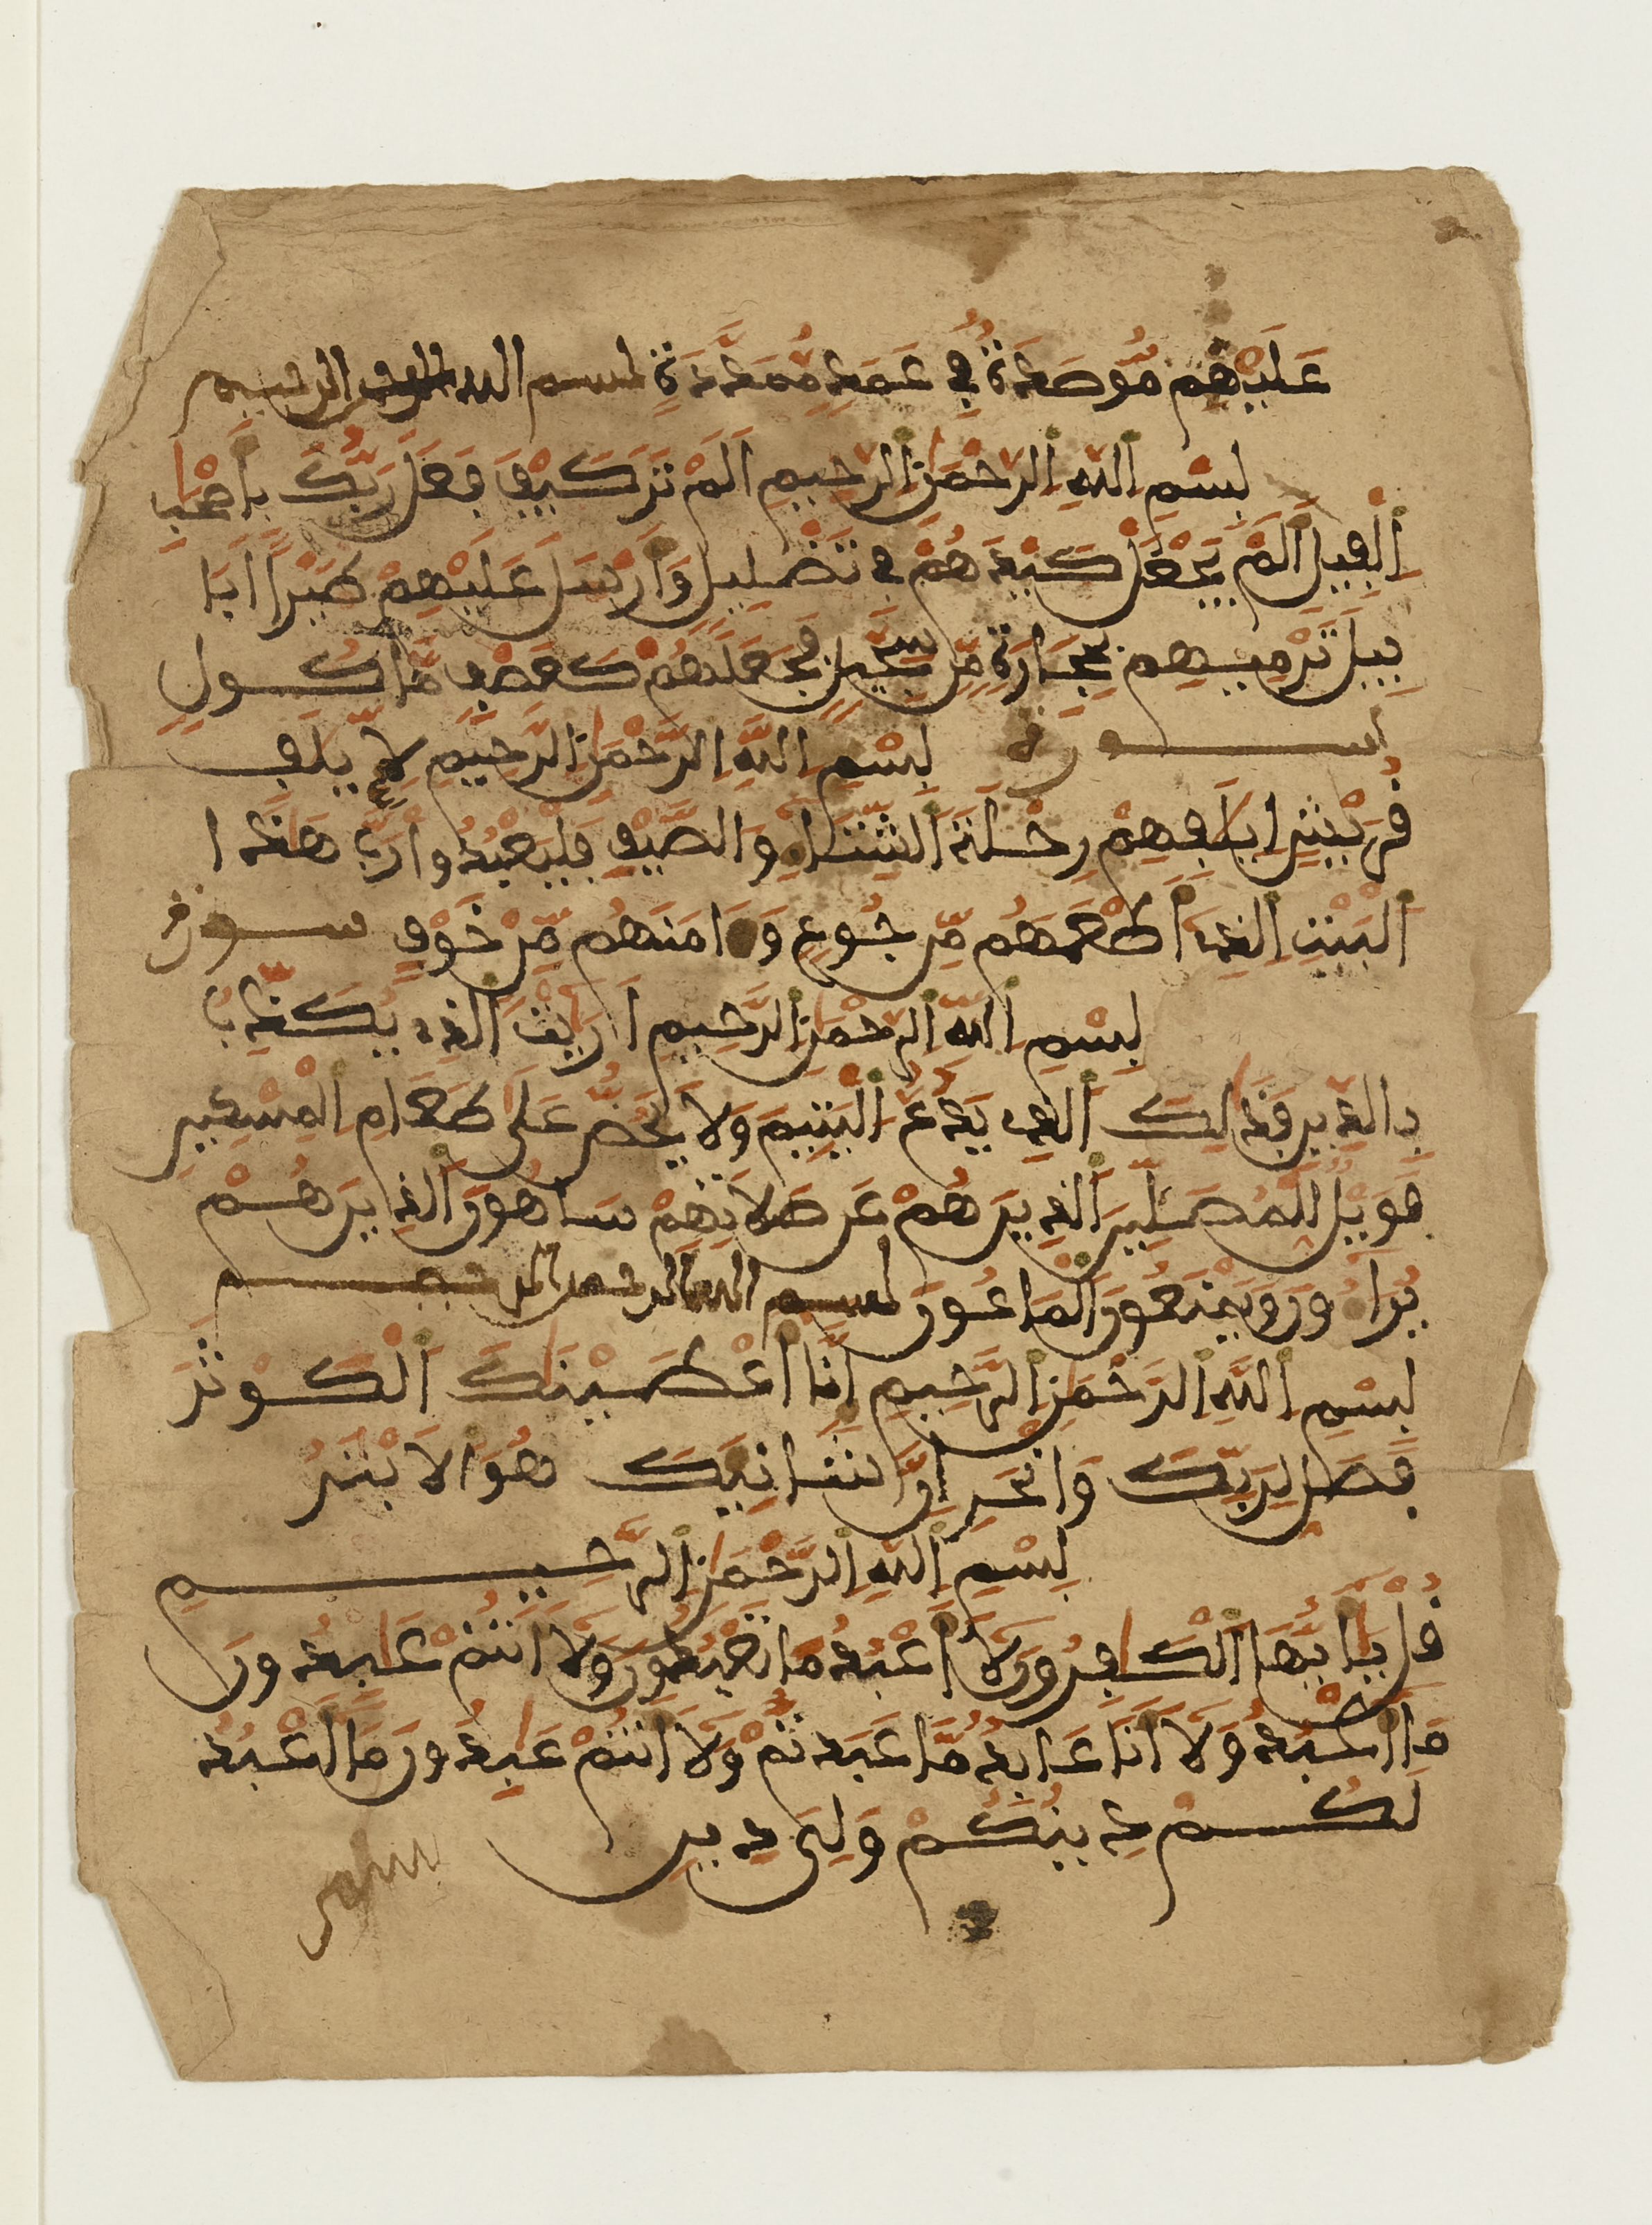 عَلَيْهِم مُّوصَدَةٌ فِي عَمَدٍ مُّمَدَّدَةٍ بسم الله الرحمن الرحيم
بِسْمِ اللَّهِ الرَّحْمَٰنِ الرَّحِيمِ أَلَمْ تَرَ كَيْفَ فَعَلَ رَبُّكَ بِأَصْحَٰبِ
اِلْفِيلِ أَلَمْ يَجْعَلْ كَيْدَهُمْ فِي تَضْلِيلٍ وَأَرْسَلَ عَلَيْهِمْ طَيْرًا أَبَا
بِيلَ تَرْمِيهِم بِحِجَارَةٍ مِّن سِجِّيلٍ فَجَعَلَهُمْ كَعَصْفٍ مَّأكُولٍ
ســورة بِسْمِ اللَّهِ الرَّحْمَٰنِ الرَّحِيمِ لِإِيلَٰفِ
قُرَيْشٍ اِۦلَٰفِهِمْ رِحْلَةَ اَلشِّتَاءِ وَالصَّيْفِ فَلْيَعْبُدُوا رَبَّ هَٰذَا ا
اَلْبَيْتِ اِلذِي أَطْعَمَهُم مِّن جُوعٍ وَءَامَنَهُم مِّنْ خَوْفٍ سورة
بِسْمِ اِللَّهِ اِلرَّحْمَٰنِ اِلرَّحِيمِ أَرَٰيْتَ اَلذِي يُكَذِّبُ
بِالدِّينِ فَذَٰلِكَ اَلذِي يَدُعُّ اُلْيَتِيمَ وَلَا يَحُضُّ عَلَىٰ طَعَامِ اِلْمِسْكِينِ
فَوَيْلٌ لِّلْمُصَلِّينَ اَلذِينَ هُمْ عَن صَلَاتِهِمْ سَاهُونَ اَلذِينَ هُمْ
يُرَاءُونَ وَيَمْنَعُونَ اَلْمَاعُونَ بسم الله الرحمن الرحيم
بِسْمِ اِللَّهِ اِلرَّحْمَٰنِ اِلرَّحِيمِ إِنَّا أَعْطَيْنَٰكَ اَلْكَوْثَرَ
فَصَلِّ لِرَبِّكَ وَانْحَرِ اِنَّ شَانِيَكَ هُوَ اَلَابْتَرُ
بِسْمِ اِللَّهِ اِلرَّحْمَٰنِ اِلرَّحِيمِ
قُلْ يَا أَيُّهَا اَلْكَٰفِرُونَ لَا أَعْبُدُ مَا تَعْبُدُونَ وَلَا أَنتُمْ عَٰبِدُونَ
مَا أَعْبُدُ وَلَا أَنَا عَابِدٌ مَّا عَبَدتُّمْ وَلَا أَنتُمْ عَٰبِدُونَ مَا أَعْبُدُ
لَكُمْ دِينُكُمْ وَلِيَ دِينِ